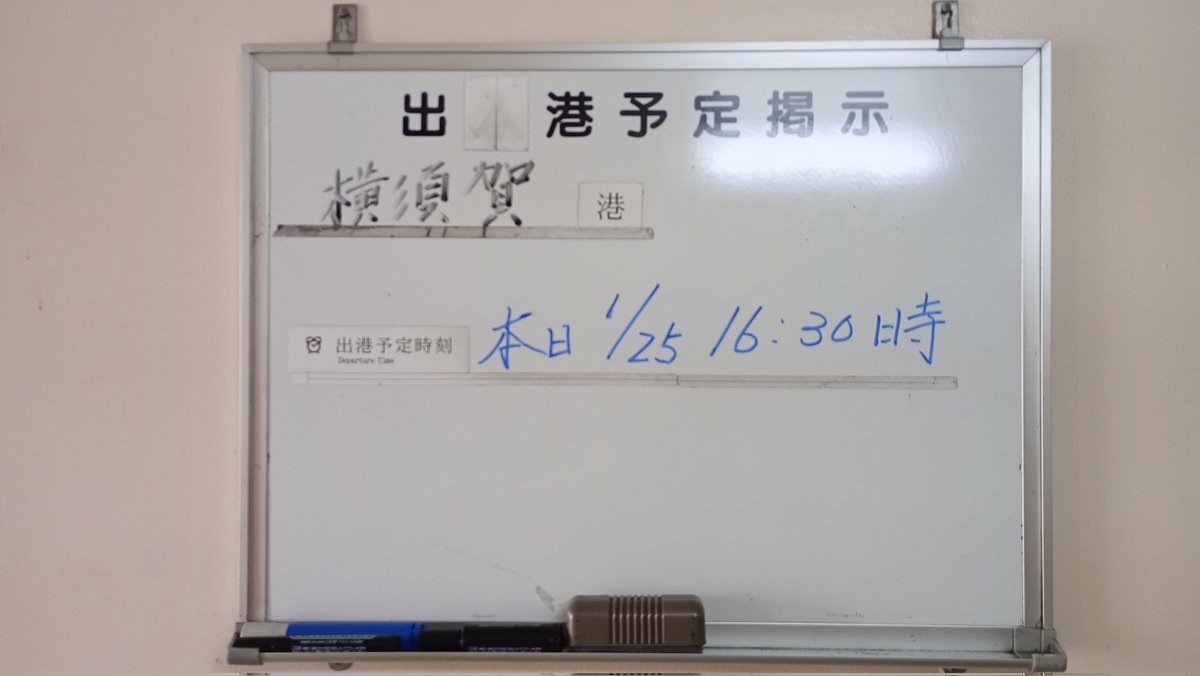 出港予定掲示
横須賀 港
出港予定時刻 本日 1/25 16:30時
Departure Time